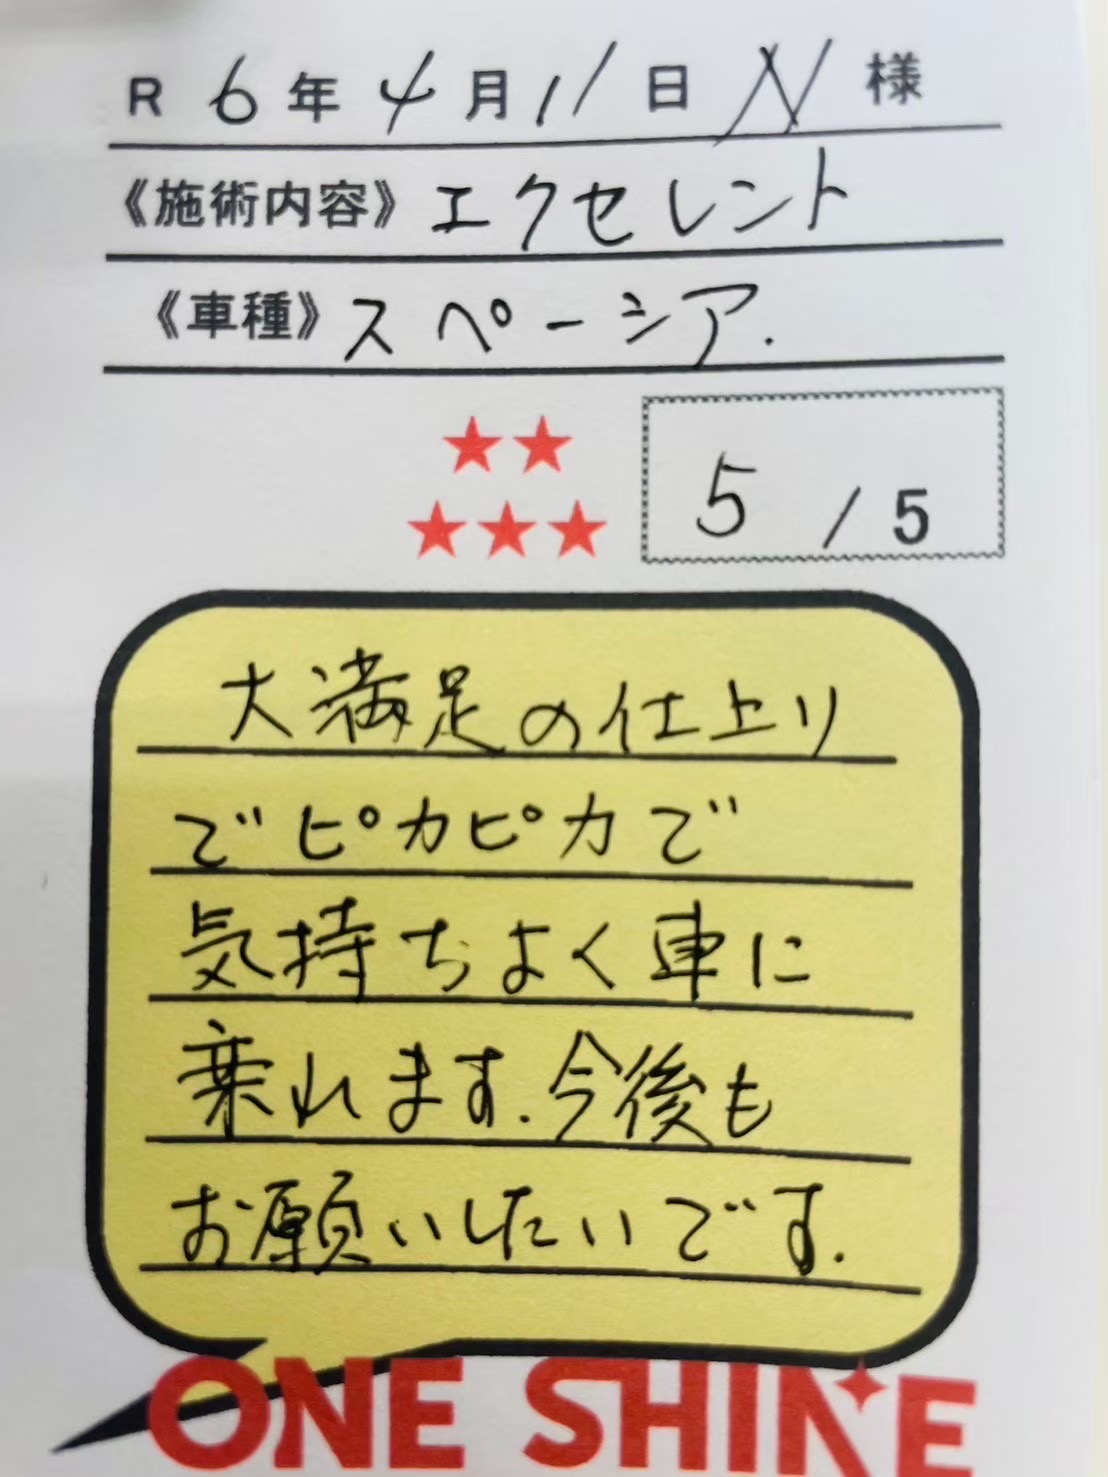 R 6年 4月 11日 N 様
《施術内容》エクセレント
《車種》スペーシア.
★★
★★★
5 / 5
大満足の仕上り
でピカピカで
気持ちよく車に
乗れます.今後も
お願いしたいです.
ONE SHINE